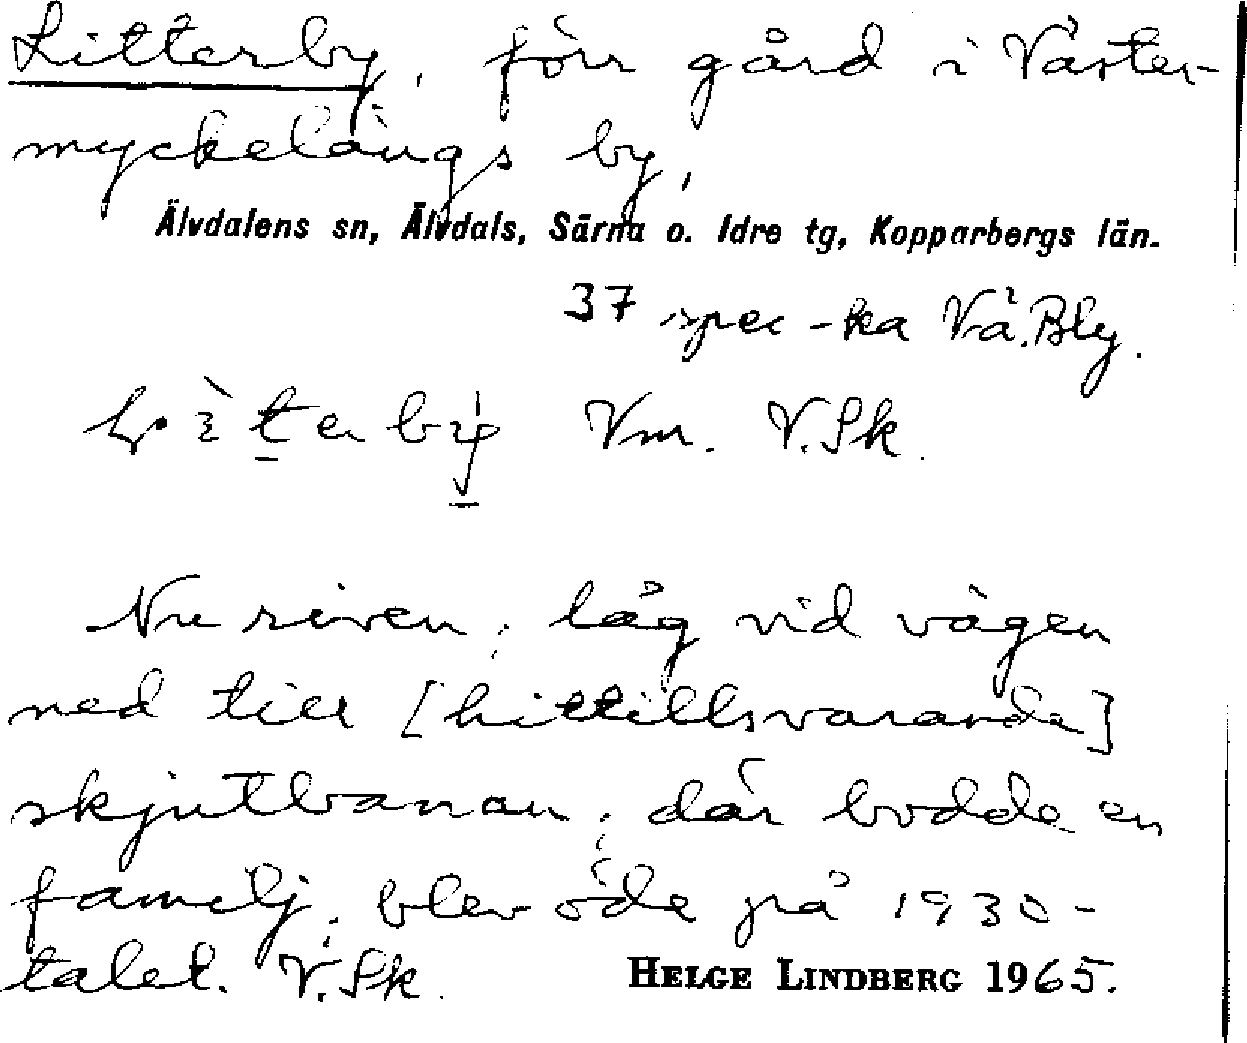 Litterby, förr gård i Väster-
myckelängs by,
Älvdalens sn, Älvdals, Särna o. Idre tg, Kopparbergs län.
37 spec-ka Vä. Bly.
Vm. V. Sk.
Nu riven; låg vid vägen
ned till [hittillsvarande]
skjutbanan; där bodde en
familj; blev öde på 1930-
talet. V. Sk.
HELGE LINDBERG 1965.